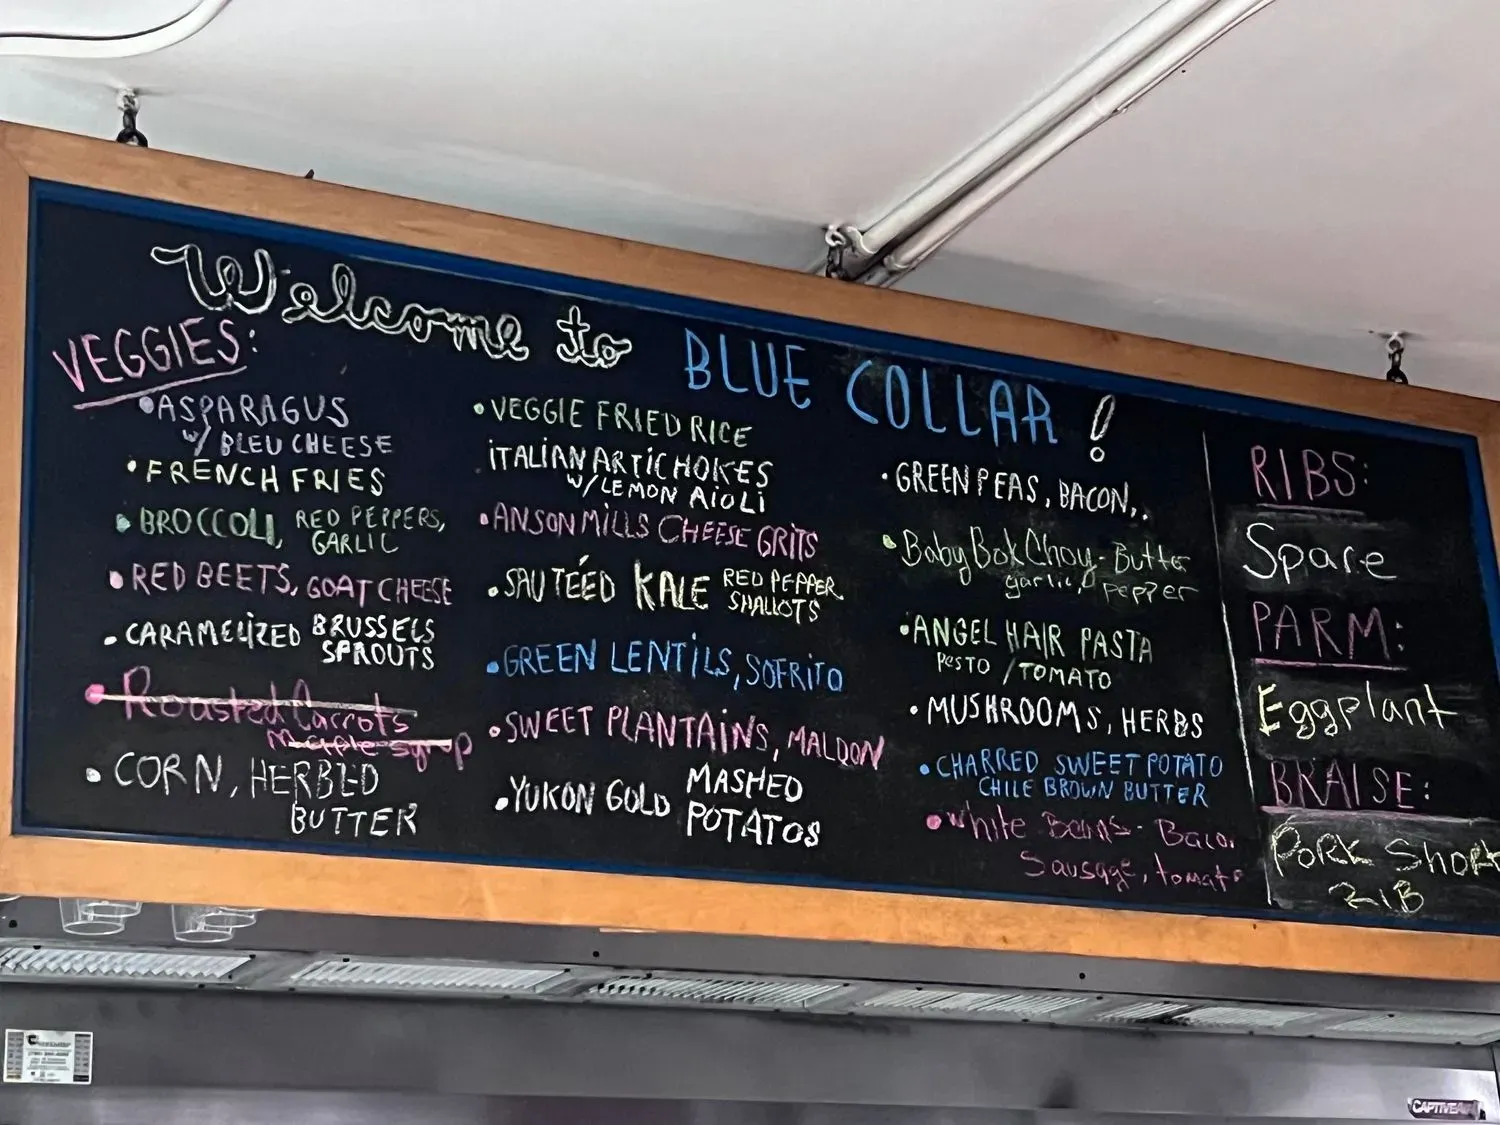 Welcome to BLUE COLLAR!
VEGGIES:
•ASPARAGUS
w/ BLEU CHEESE
•FRENCH FRIES
•BROCCOLI, RED PEPPERS,
GARLIC
•RED BEETS, GOAT CHEESE
•CARAMELIZED BRUSSELS
SPROUTS
•Roasted Carrots
Maple syrup
•CORN, HERBED
BUTTER
•VEGGIE FRIED RICE
ITALIAN ARTICHOKES
W/LEMON AIOLI
•ANSON MILLS CHEESE GRITS
•SAUTÉED KALE RED PEPPER
SHALLOTS
•GREEN LENTILS, SOFRITO
•SWEET PLANTAINS, MALDON
•YUKON GOLD MASHED
POTATOS
•GREEN PEAS, BACON,.
•Baby Bok Choy - Butter
garlic, pepper
•ANGEL HAIR PASTA
PESTO / TOMATO
•MUSHROOMS, HERBS
•CHARRED SWEET POTATO
CHILE BROWN BUTTER
•White Beans - Bacon
Sausage, tomato
RIBS:
Spare
PARM:
Eggplant
BRAISE:
PORK Short
RIB
CAPTIVEAIRE